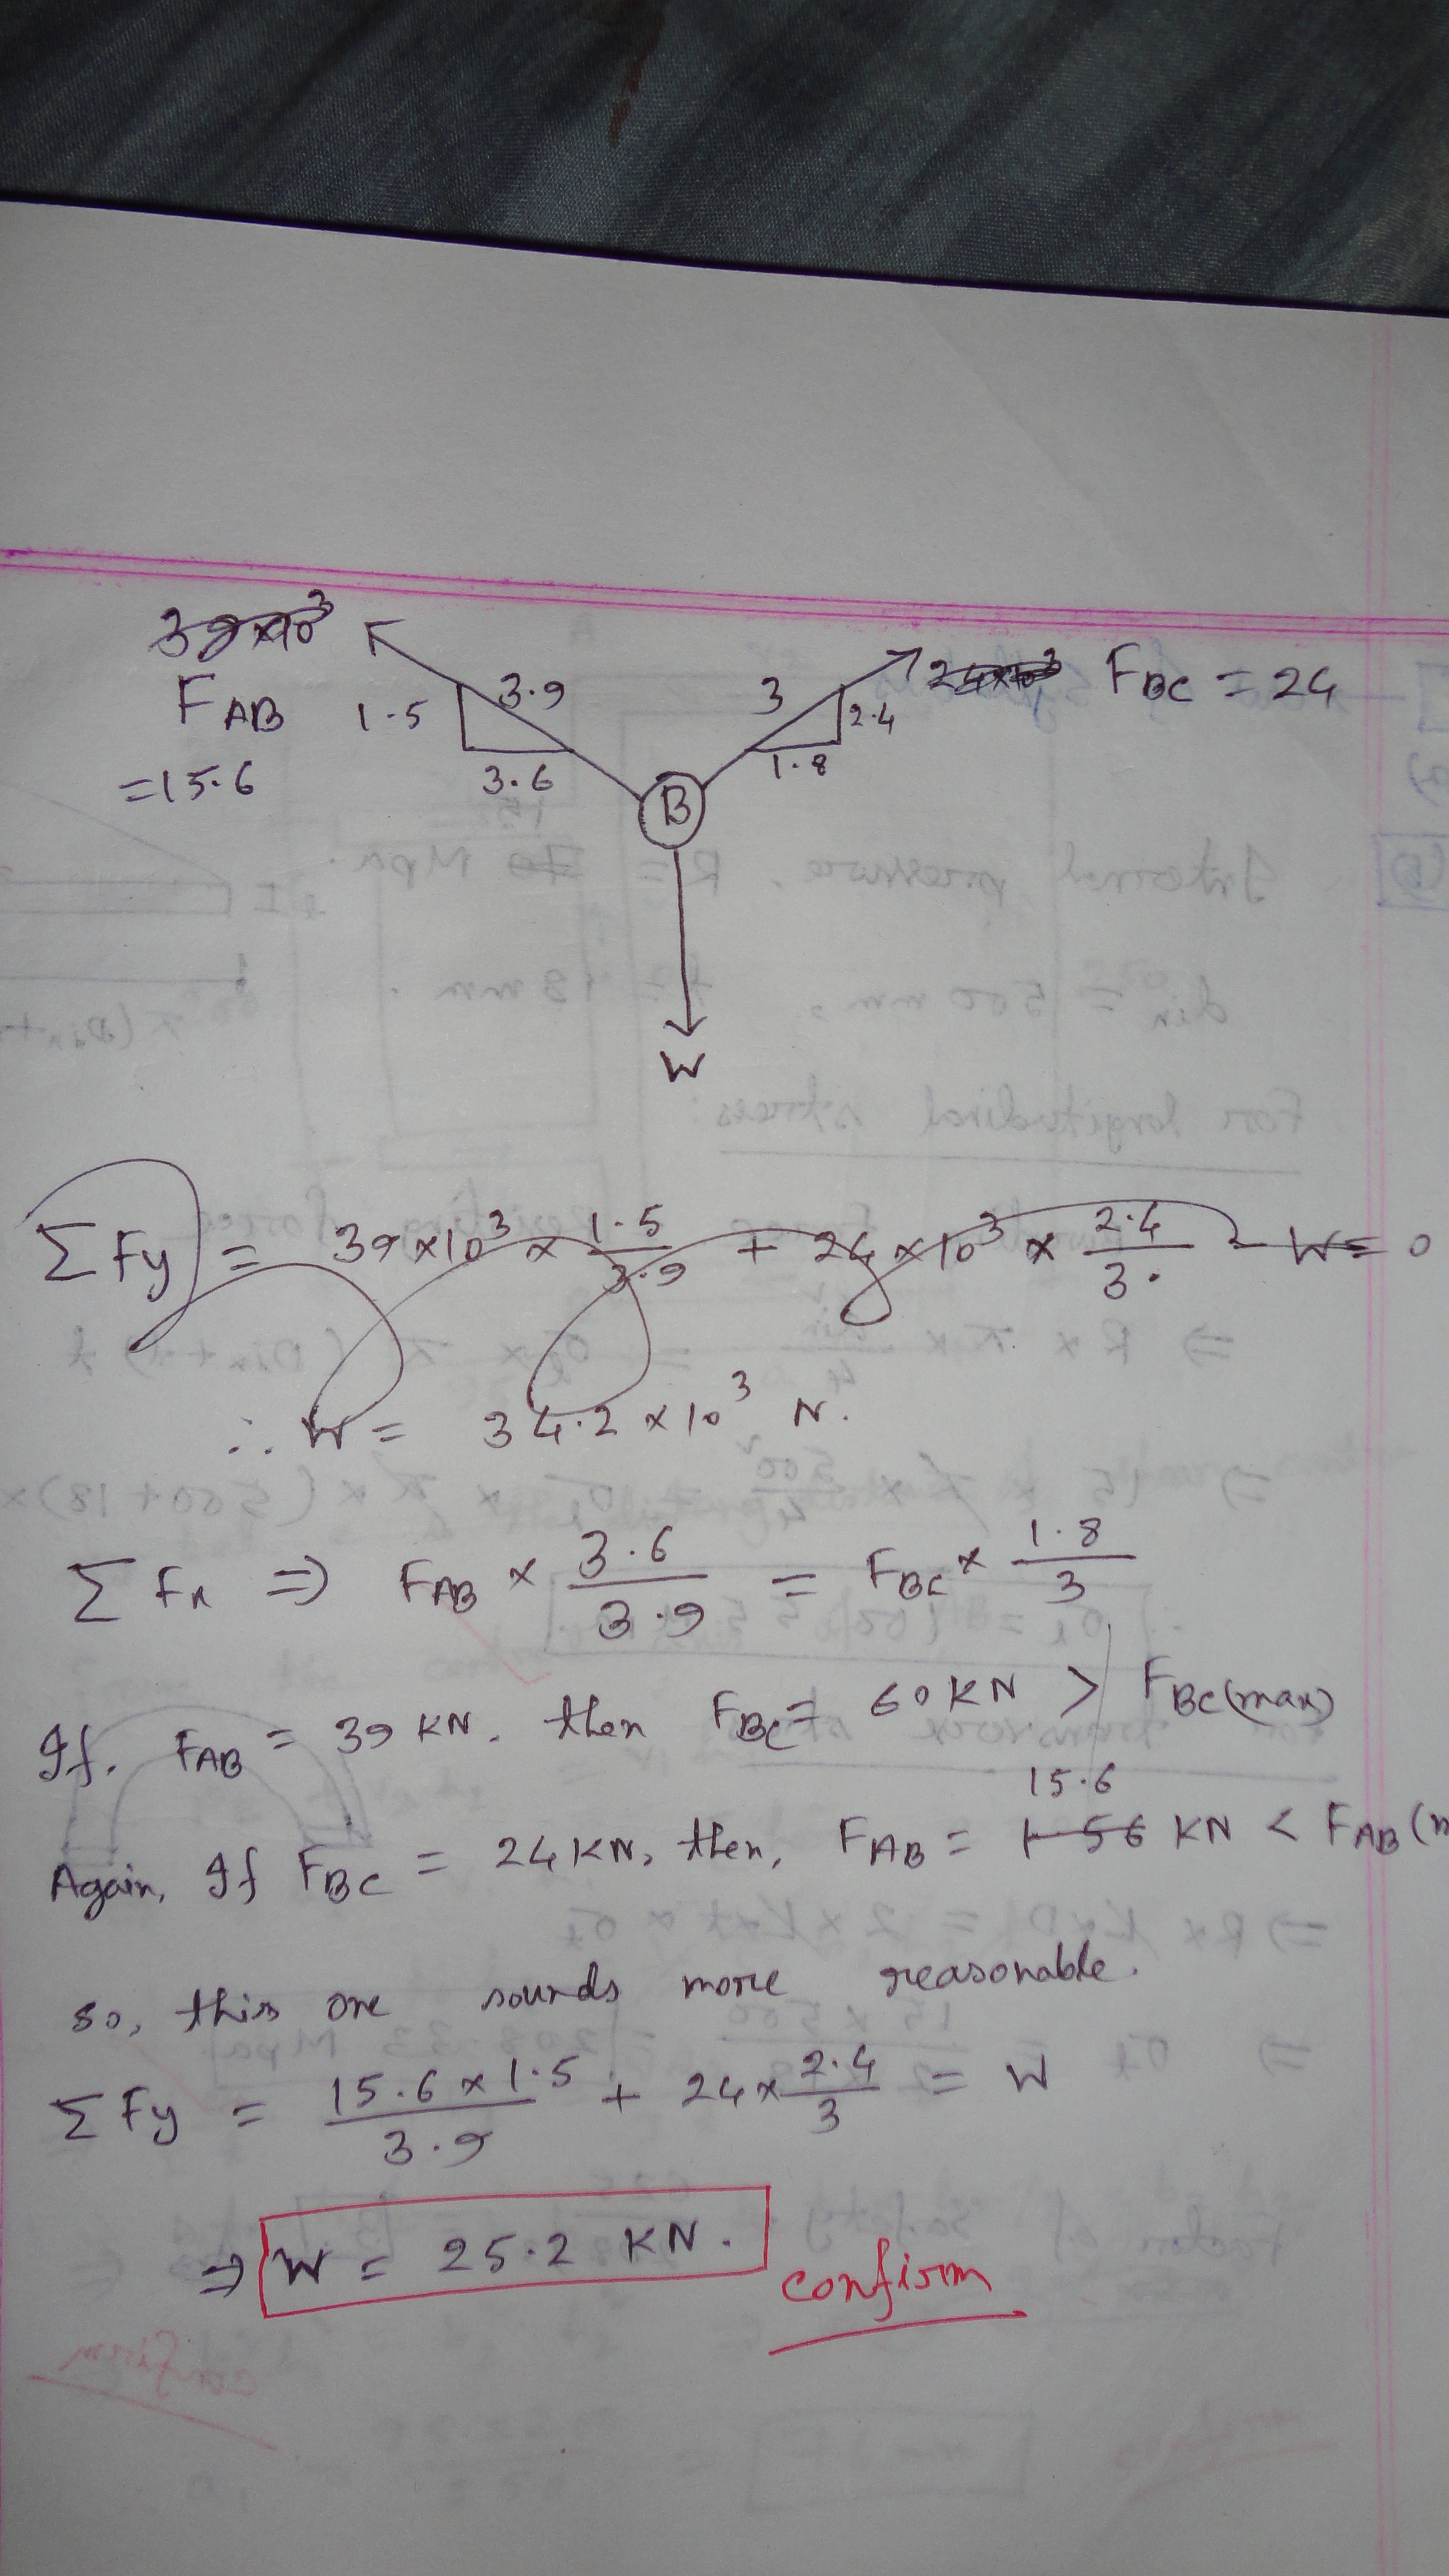 39×10³
F_AB
=15.6
1.5
3.9
3.6
3
2.4
1.8
24×10³ F_BC = 24
B
W
ΣFy = 39×10³ × 1.5/3.9 + 24×10³ × 2.4/3. - W = 0
∴ W = 34.2×10³ N.
ΣFx ⇒ F_AB × 3.6/3.9 = F_BC × 1.8/3
If. F_AB = 39 KN. then F_BC = 60 KN > F_BC(max)
15.6
Again, If F_BC = 24 KN, then, F_AB = 156 KN < F_AB (m
so, this one sounds more reasonable.
ΣFy = 15.6×1.5/3.9 + 24×2.4/3 = W
⇒ W = 25.2 KN.
confirm